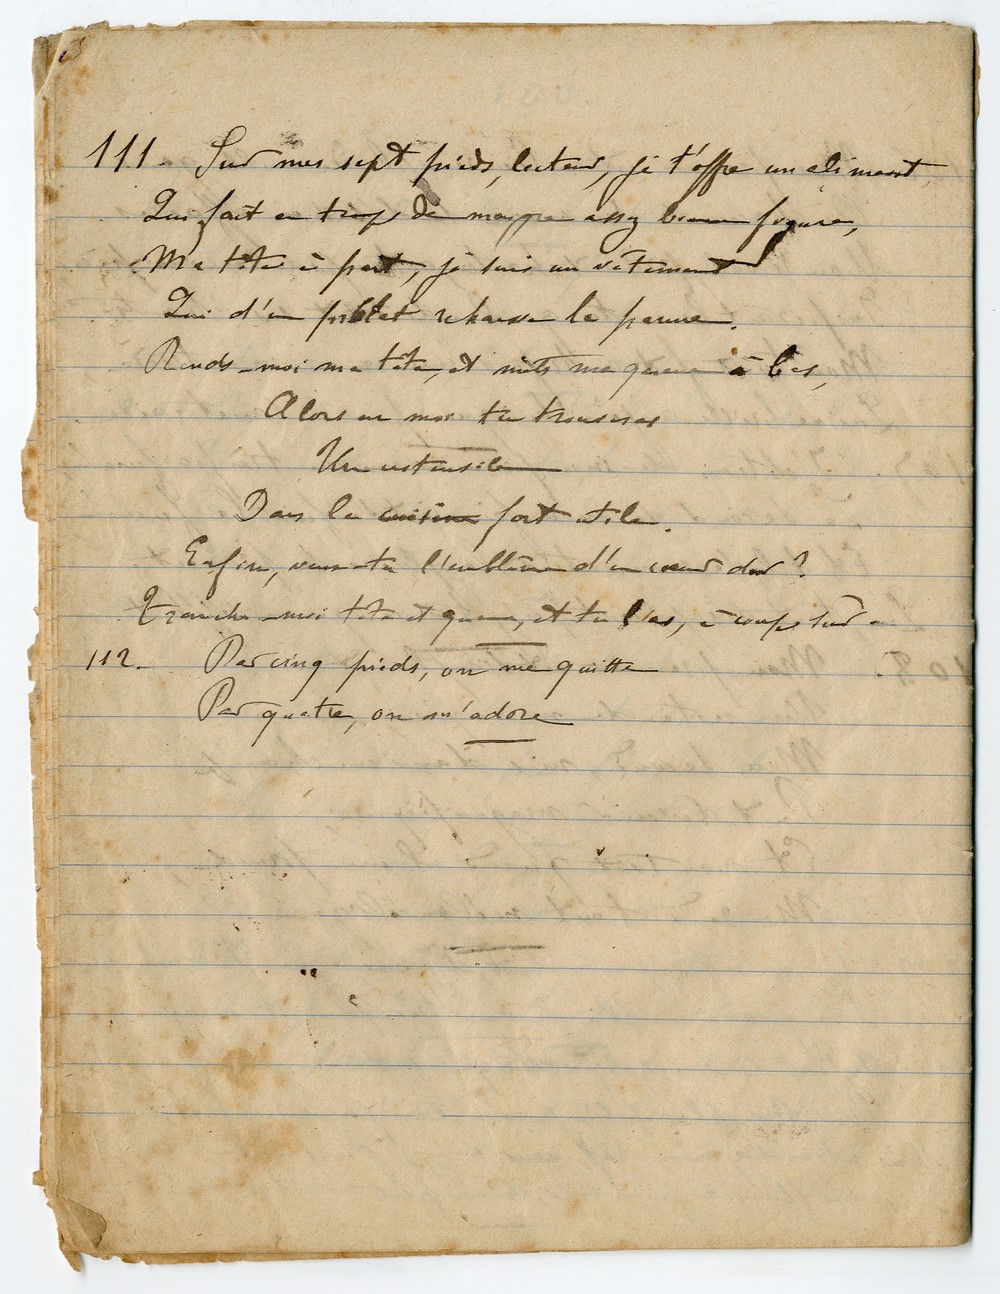 111. Sur mes sept pieds, lecteur, je t'offre un aliment,
Qui fait en temps de maigre assez bonne figure,
Ma tête à part, je suis un vêtement
Qui d'un prélat rehausse la parure.
Rends-moi ma tête, et mets ma queue à bas,
Alors en moi tu trouveras
Un ustensile
Dans la cuisine fort utile.
Enfin, veux-tu l'emblème d'un cœur dur ?
Tranche-moi tête et queue, et tu l'as, à coup sûr.
112. Par cinq pieds, on me quitte
Par quatre, on m'adore